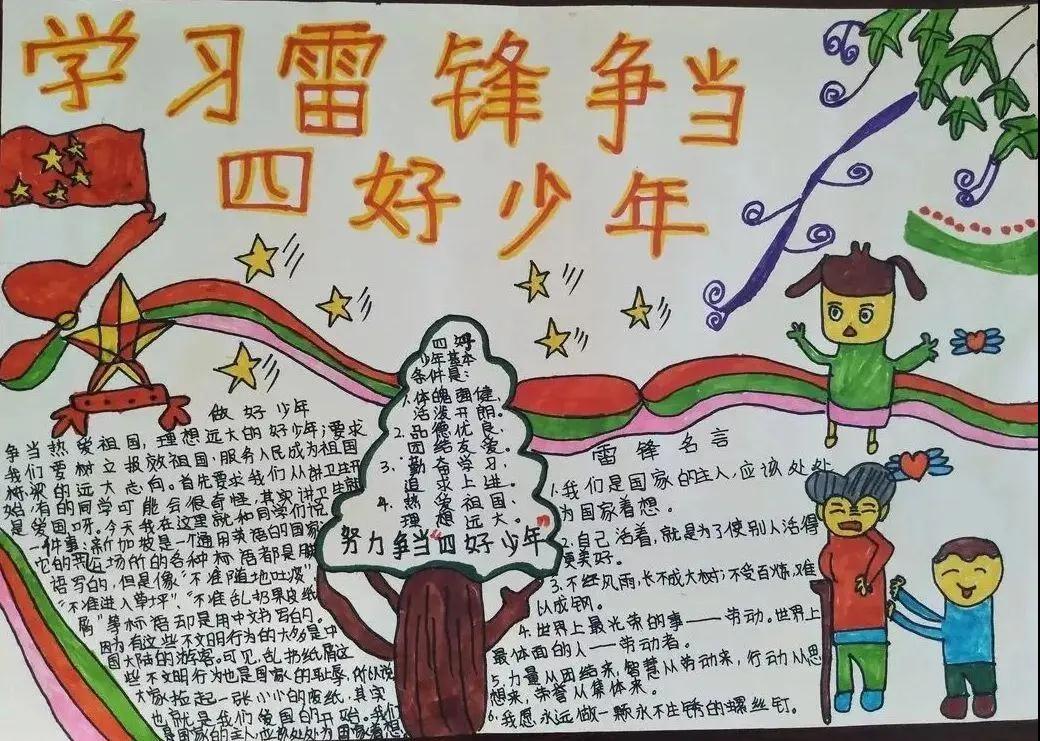 学习雷锋争当
四好少年
做好少年
争当热爱祖国，理想远大的好少年；要求
我们要树立报效祖国，服务人民成为祖国
栋梁的远大志向。首先要求我们从讲卫生开
始，有的同学可能会很奇怪，其实讲卫生就
是爱国呀。今天我在这里就和同学们说
一件事：新加坡是一个通用英语的国家
它的公共场所的各种标语都是用英
语写的，但是像"不准随地吐痰"
"不准进入草坪"、"不准乱扔果皮纸
屑"等标语却是用中文书写的。
因为有这些不文明行为的大多是中
国大陆的游客。可见，乱扔纸屑这
些不文明行为也是国家的耻辱，所以说
大家捡起一张小小的废纸，其实
也就是我们爱国的开始。我们
是国家的主人，应该处处为国家着想。
四好
少年基本
条件是：
1.体魄强健，
活泼开朗。
2.品德优良，
团结友爱。
3.勤奋学习，
追求上进。
4.热爱祖国、
理想远大。
努力争当"四好少年"
雷锋名言
1.我们是国家的主人，应该处处
为国家着想。
2.自己活着，就是为了使别人活得
更美好。
3.不经风雨，长不成大树；不受百炼，难
以成钢。
4.世界上最光荣的事——劳动。世界上
最体面的人——劳动者。
5.力量从团结来，智慧从劳动来，行动从思
想来，荣誉从集体来。
6.我愿永远做一颗永不生锈的螺丝钉。